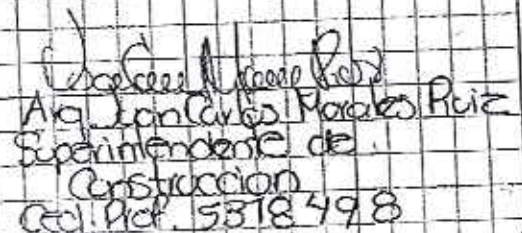 Arq Juan Carlos Morales Ruiz
Superintendente de
Construccion
Ced. Prof. 5378498